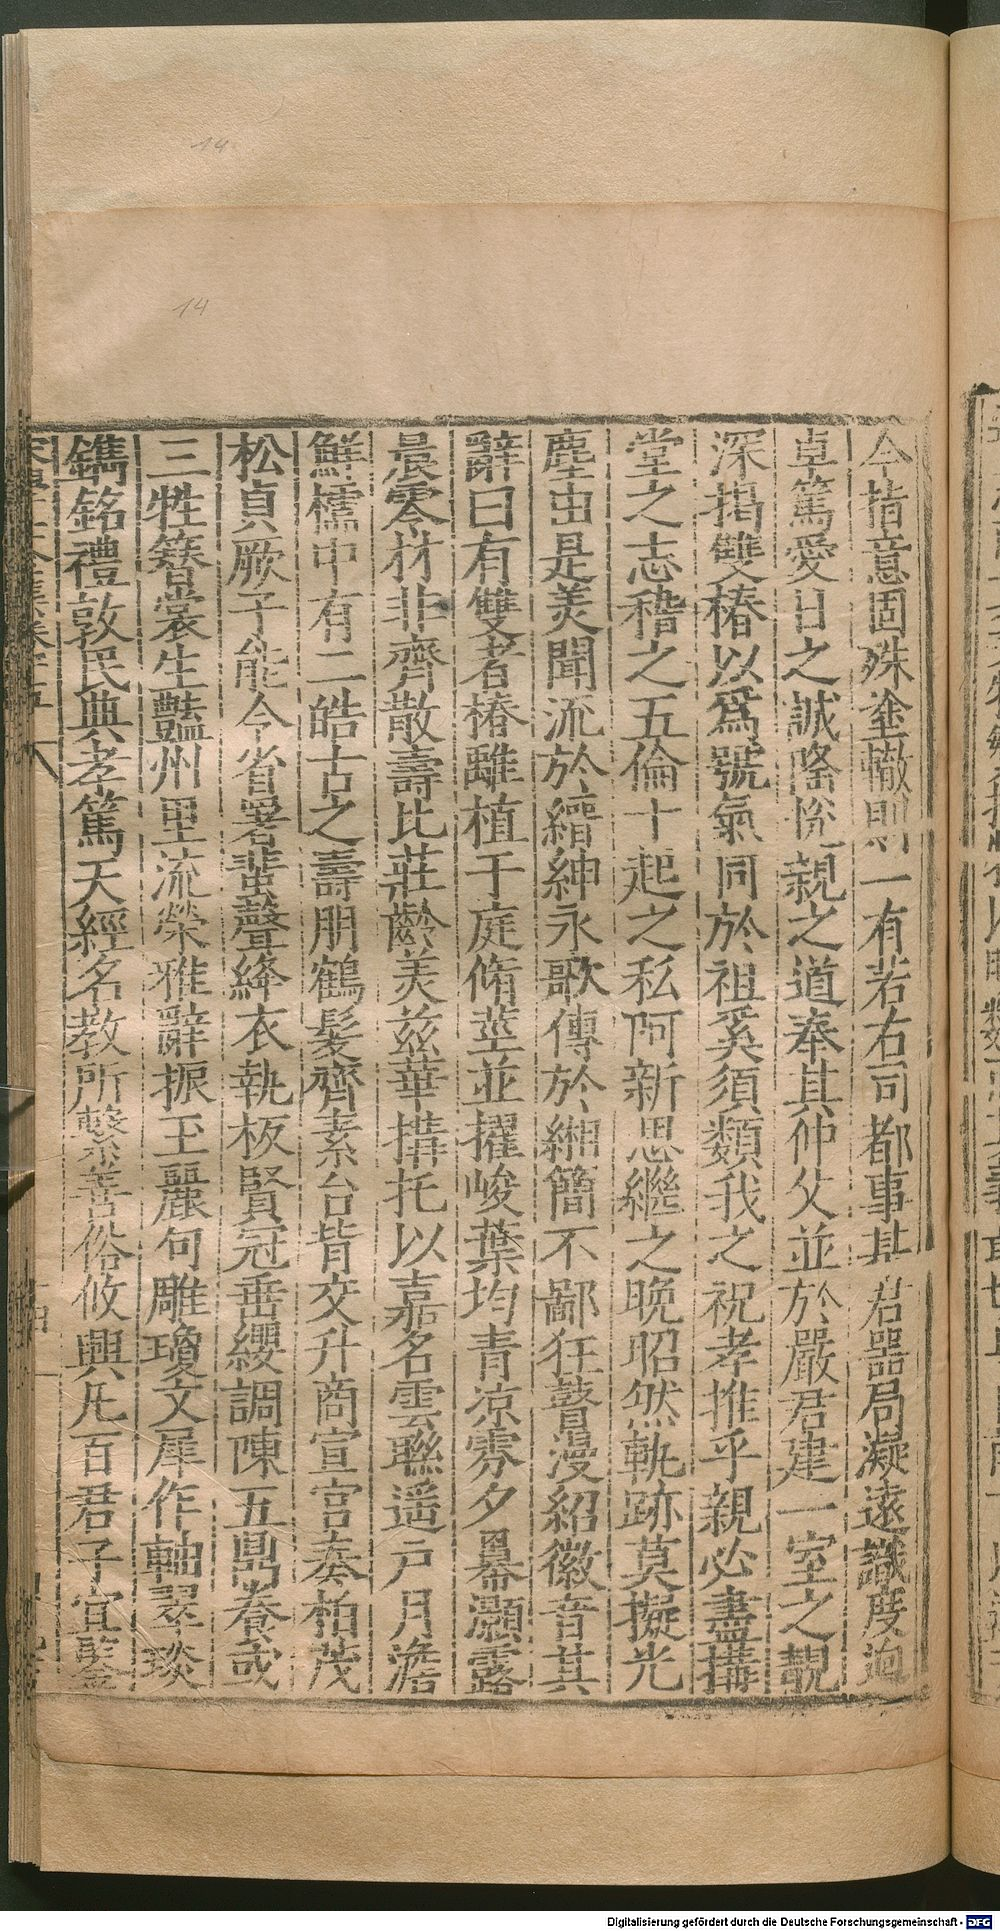 今指意固殊塗轍則一有若右司都事某君器局凝遠識度迥
卓篤愛日之誠隆悅親之道奉其仲父並於嚴君建一室之靚
深揭雙椿以爲號氣同於祖奚須類我之祝孝推乎親必盡搆
堂之志稽之五倫十起之私阿新思繼之晚昭然軌跡莫擬光
塵出是羙聞流於縉紳永歌傳於緗簡不鄙狂瞽漫紹徽音其
辭曰有雙者椿離植于庭脩莖並擢峻葉均青凉雰夕羃灝露
晨零材非齊散壽比莊齡羙茲華搆托以嘉名雲聯遥戸月澹
鮮櫺中有二皓古之壽朋鶴髮齊素台背交升商宣宫奏柏茂
松貞厥子能令省署蜚聲絳衣執板賢冠垂纓調陳五鼎養或
三牲簪裳生豔州里流榮雅辭振玉麗句雕瓊文犀作軸翠琰
鐫銘禮敦民典孝篤天經名教所繫善俗攸興凡百君子宜監
14
14
Digitalisierung gefördert durch die Deutsche Forschungsgemeinschaft - DFG